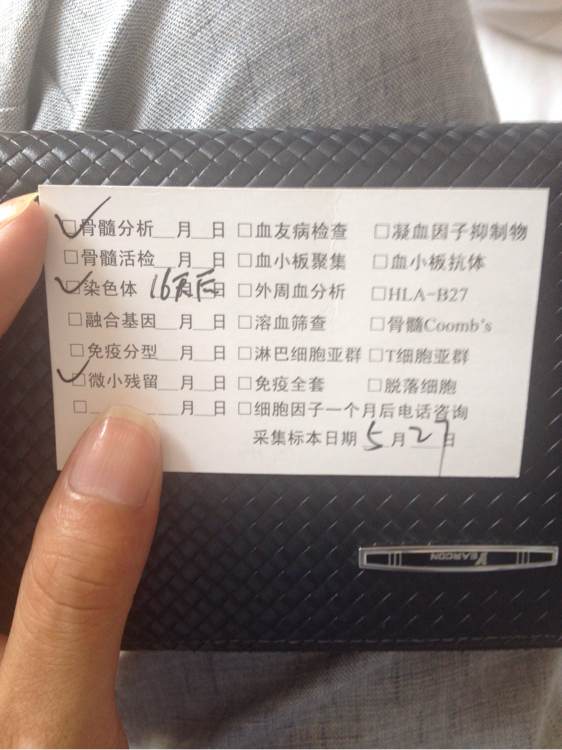 ☑骨髓分析__月__日 □血友病检查 □凝血因子抑制物
□骨髓活检__月__日 □血小板聚集 □血小板抗体
☑染色体 16天后 月__日 □外周血分析 □HLA-B27
□融合基因__月__日 □溶血筛查 □骨髓Coomb's
□免疫分型__月__日 □淋巴细胞亚群 □T细胞亚群
☑微小残留__月__日 □免疫全套 □脱落细胞
□______月__日 □细胞因子一个月后电话咨询
采集标本日期 5月27日
YEARCON